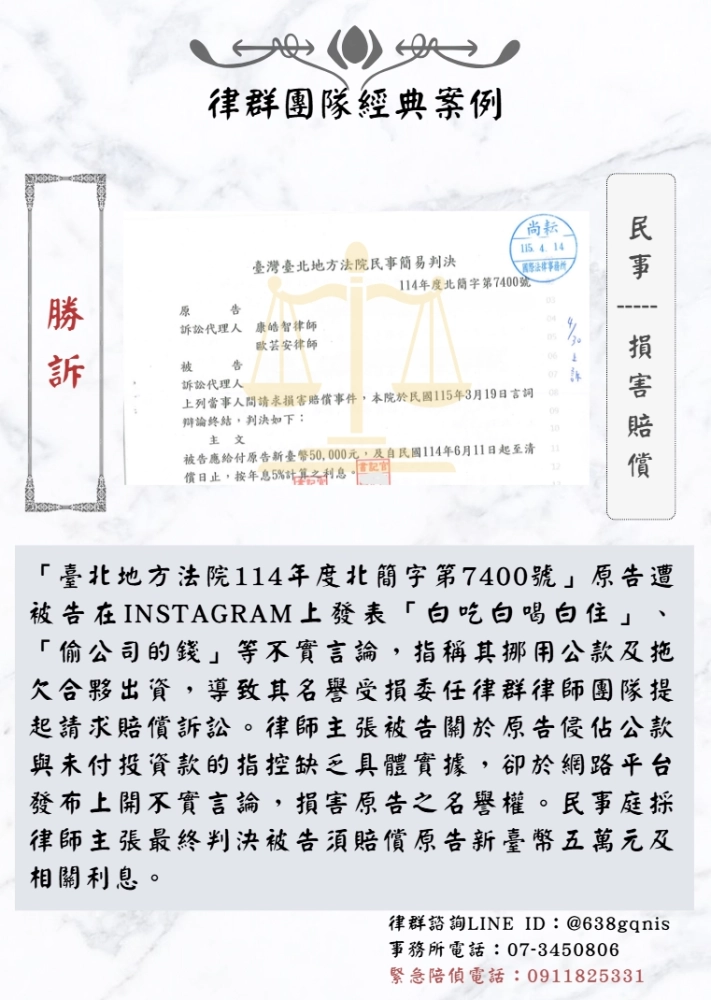 律群團隊經典案例
勝訴
民事-----損害賠償
尚耘
115. 4. 14
國際法律事務所
臺灣臺北地方法院民事簡易判決
114年度北簡字第7400號
原　　　告
訴訟代理人　康皓智律師
歐芸安律師
被　　　告
訴訟代理人
上列當事人間請求損害賠償事件，本院於民國115年3月19日言詞
辯論終結，判決如下：
主　文
被告應給付原告新臺幣50,000元，及自民國114年6月11日起至清
償日止，按年息5%計算之利息。
書記官
書記官
4/30上訴
「臺北地方法院114年度北簡字第7400號」原告遭
被告在INSTAGRAM上發表「白吃白喝白住」、
「偷公司的錢」等不實言論，指稱其挪用公款及拖
欠合夥出資，導致其名譽受損委任律群律師團隊提
起請求賠償訴訟。律師主張被告關於原告侵佔公款
與未付投資款的指控缺乏具體實據，卻於網路平台
發布上開不實言論，損害原告之名譽權。民事庭採
律師主張最終判決被告須賠償原告新臺幣五萬元及
相關利息。
律群諮詢LINE ID：@638gqnis
事務所電話：07-3450806
緊急陪偵電話：0911825331